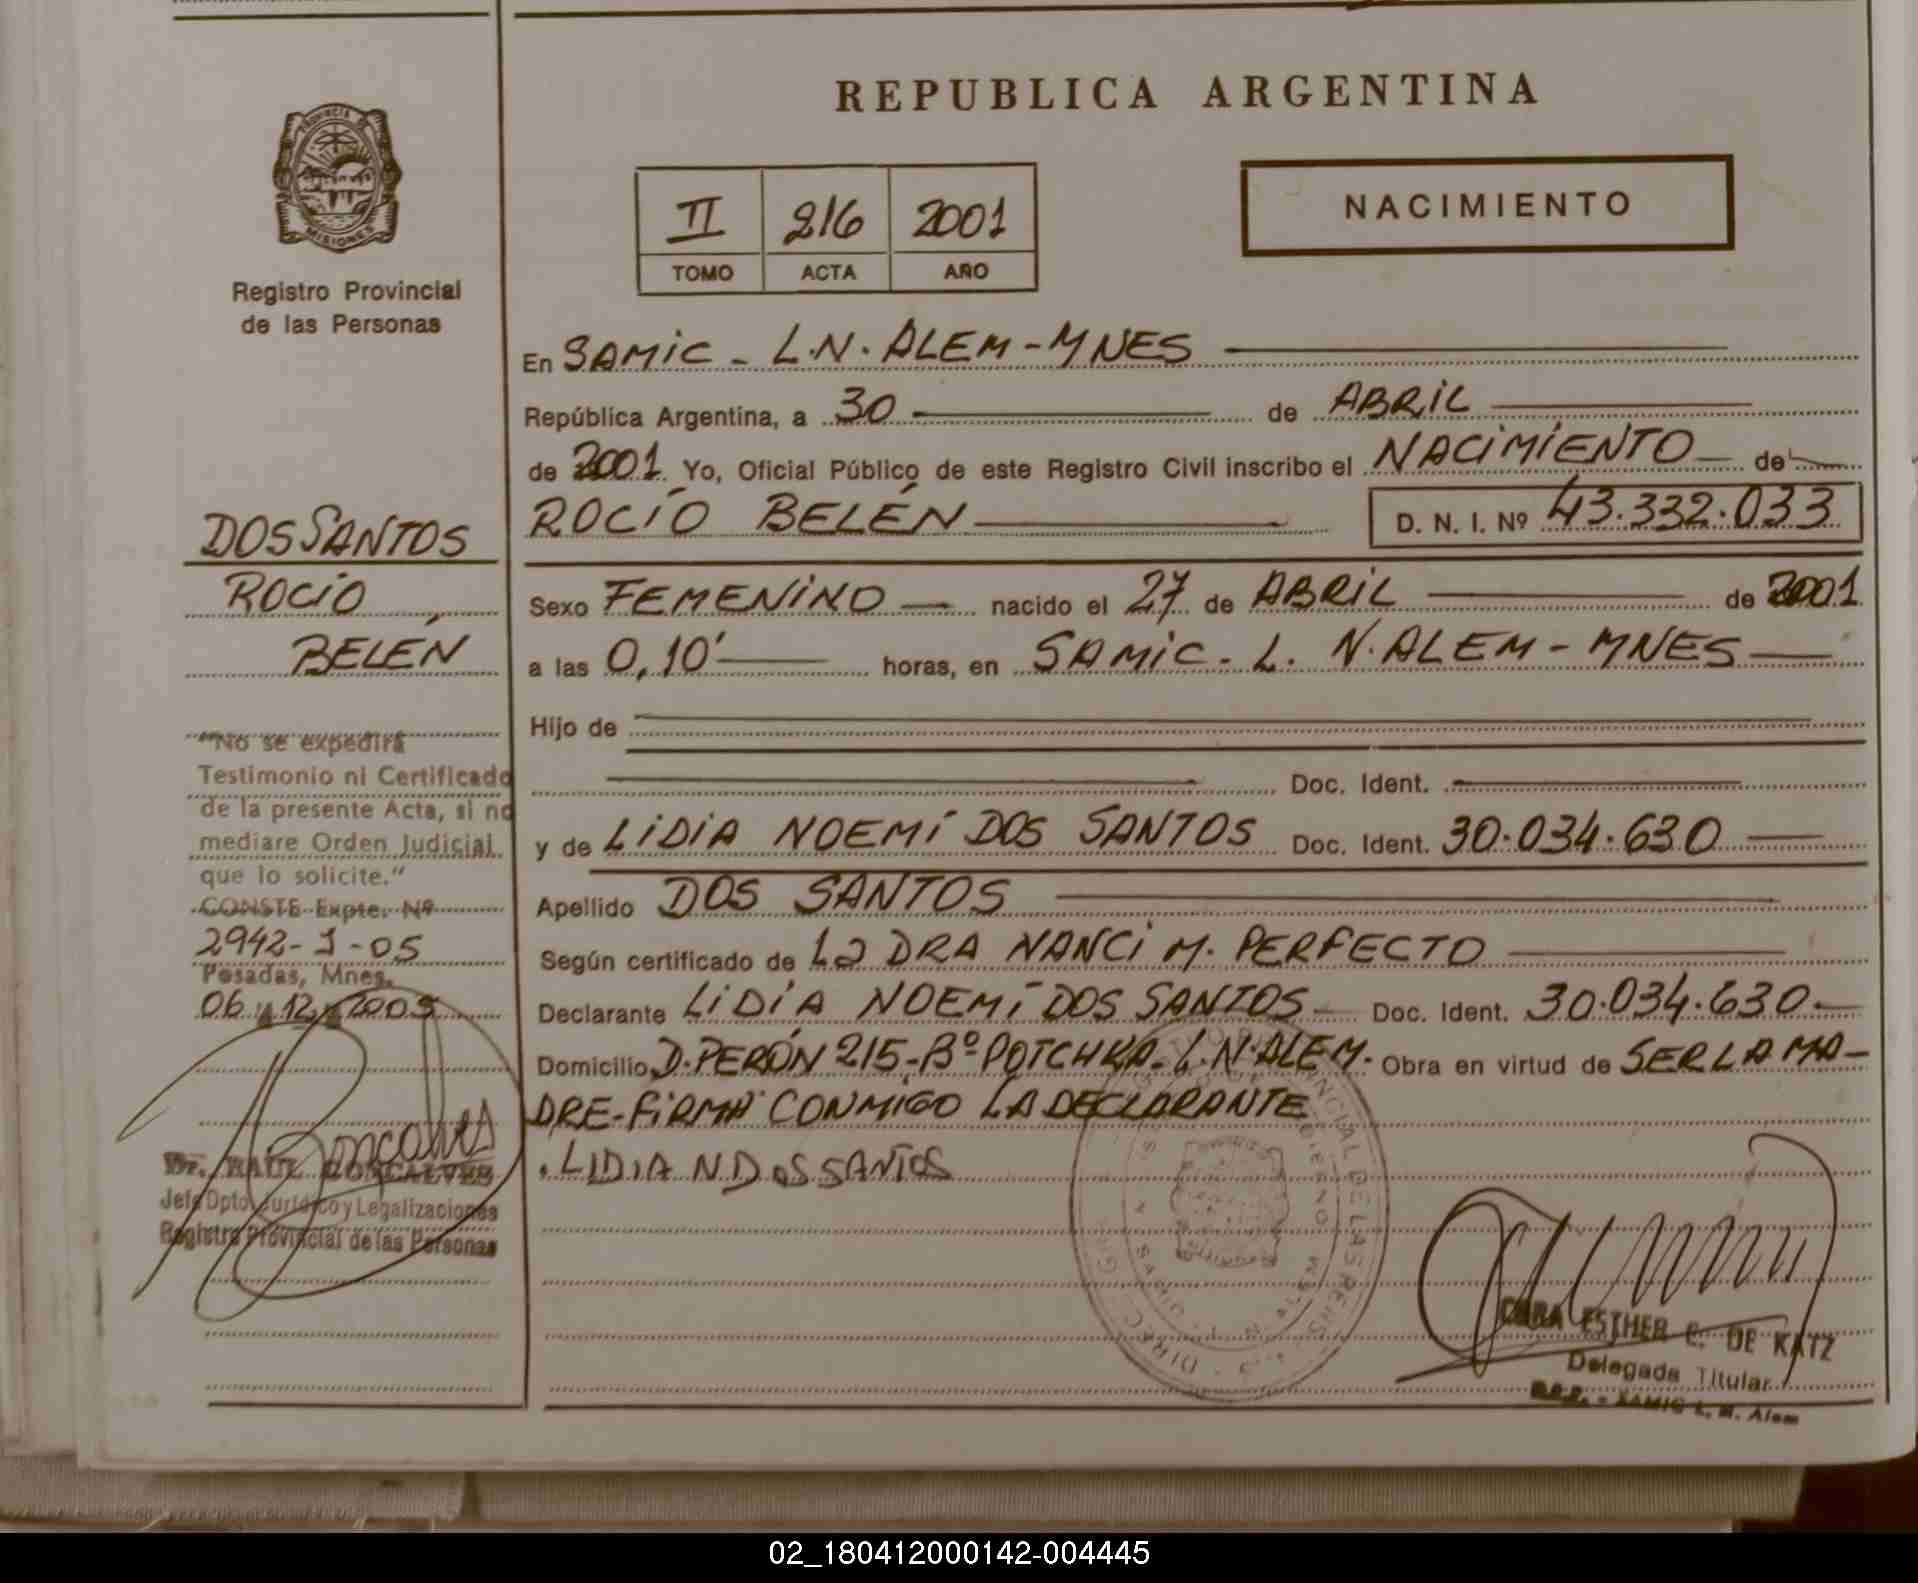 REPUBLICA ARGENTINA
PROVINCIA DE
MISIONES
Registro Provincial
de las Personas
II 216 2001
TOMO ACTA AÑO
NACIMIENTO
En SAMIC - L.N. ALEM - MNES
República Argentina, a 30 de ABRIL
de 2001 Yo, Oficial Público de este Registro Civil inscribo el NACIMIENTO de
ROCÍO BELÉN D. N. I. Nº 43.332.033
Sexo FEMENINO nacido el 27 de ABRIL de 2001
a las 0,10' horas, en SAMIC - L. N. ALEM - MNES
Hijo de
Doc. Ident.
y de LIDIA NOEMÍ DOS SANTOS Doc. Ident. 30.034.630
Apellido DOS SANTOS
Según certificado de La DRA NANCI M. PERFECTO
Declarante LIDIA NOEMÍ DOS SANTOS Doc. Ident. 30.034.630
Domicilio D. PERÓN 215 - Bº POTCHKA - L.N. ALEM. Obra en virtud de SER LA MA-
DRE - FIRMA CONMIGO LA DECLARANTE
. LIDIA N DOS SANTOS
DOS SANTOS
ROCIO
BELÉN
"No se expedirá
Testimonio ni Certificado
de la presente Acta, si no
mediare Orden Judicial
que lo solicite."
CONSTE Expte. Nº
2942-J-05
Posadas, Mnes.
06 12 2005
Dr. RAUL GONCALVES
Jefe Dpto. Jurídico y Legalizaciones
Registro Provincial de las Personas
ESTHER C. DE KATZ
Delegada Titular
SAMIC L. N. Alem
02_180412000142-004445